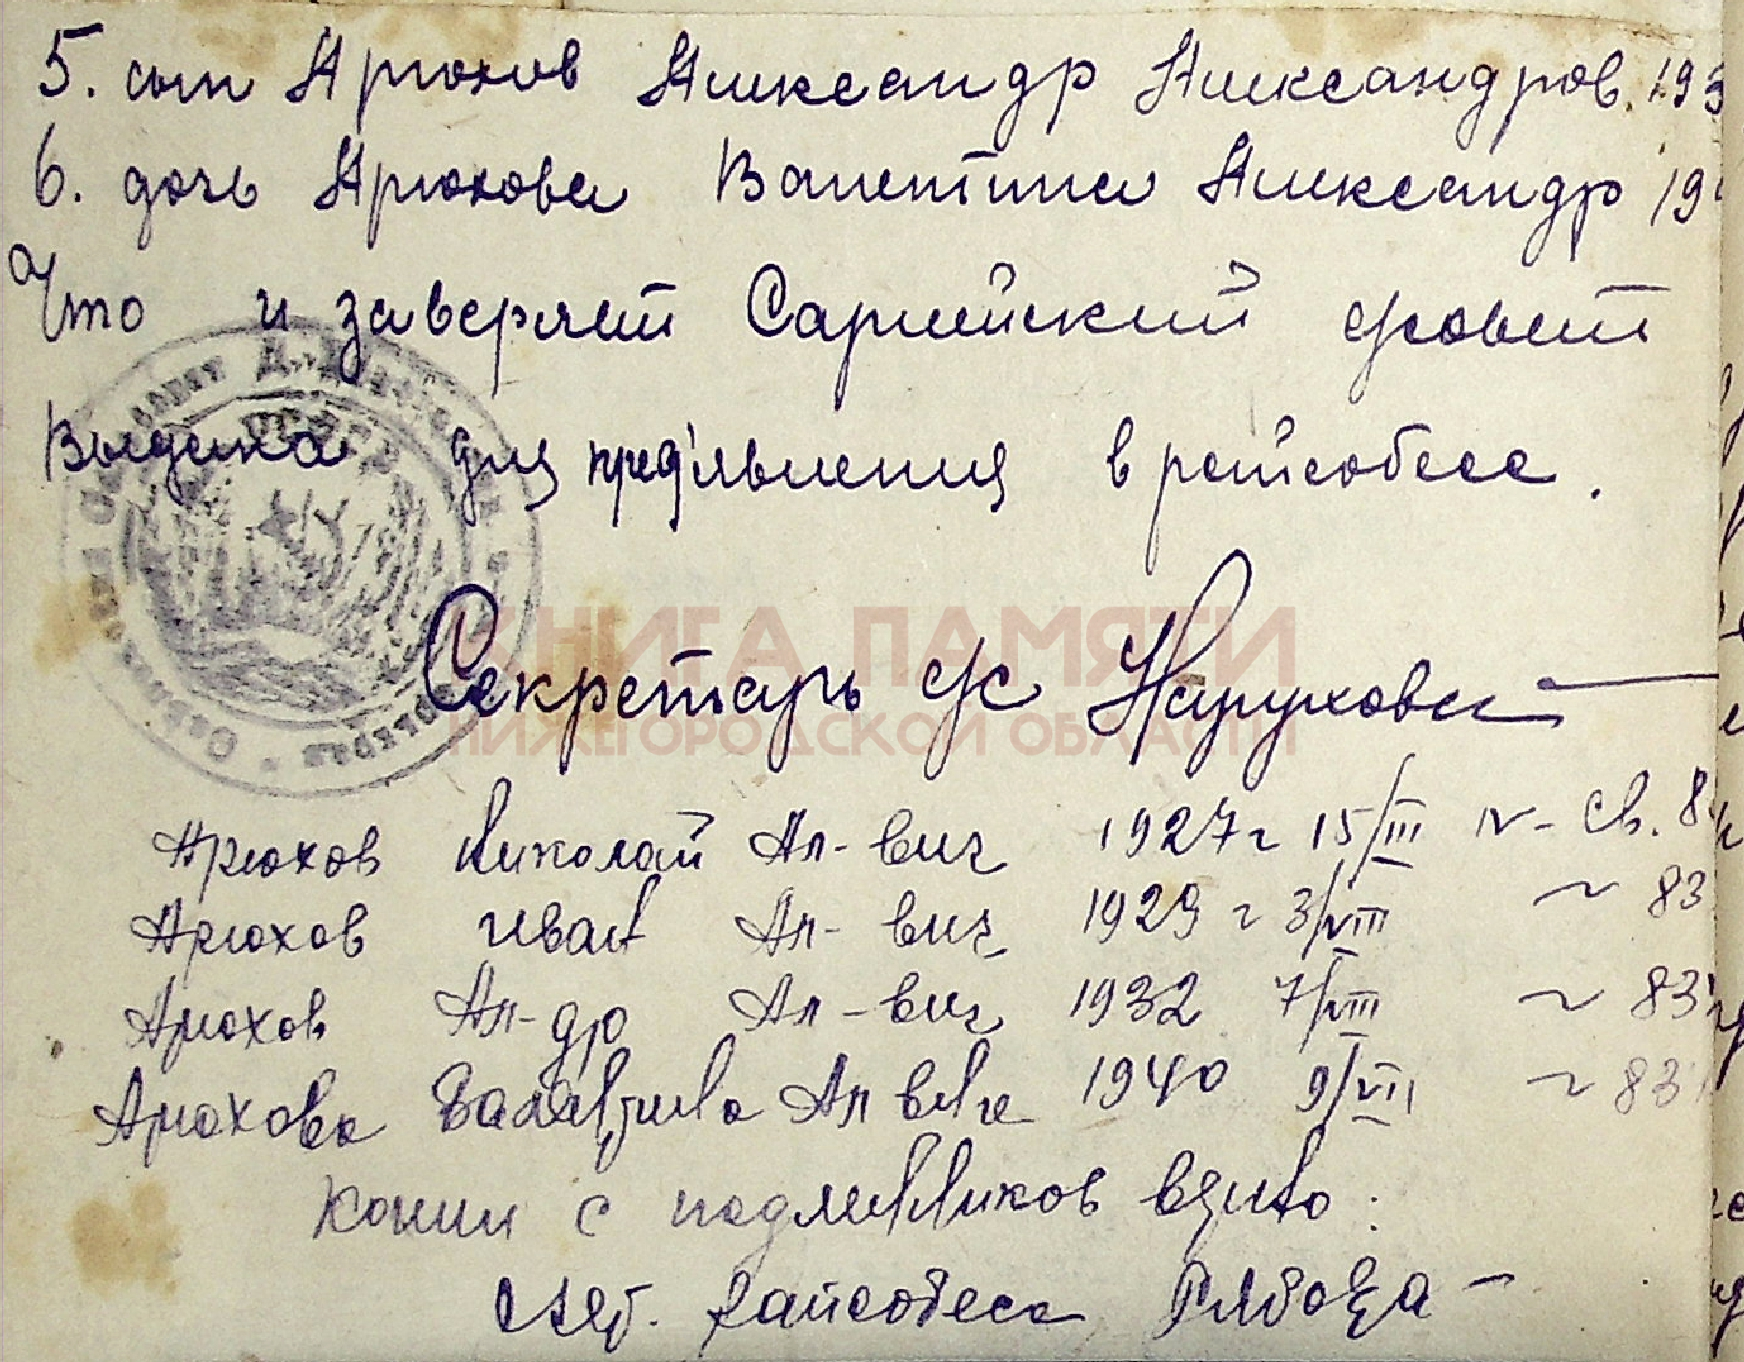 5. сын Арюхов Александр Александров. 193
6. дочь Арюхова Валентина Александр 19
Что и заверяет Сарлейский с/совет
Выдана для пред'явления в райсобесе.
КНИГА ПАМЯТИ
Секретарь с/с
НИЖЕГОРОДСКОЙ ОБЛАСТИ
Арюхов Николай Ал-вич 1927г 15/III IV- Св. 8
Арюхов Иван Ал-вич 1929 г 3/VIII ~ 83
Арюхов Ал-др Ал-вич 1932 7/VIII ~ 83
Арюхова Валентина Ал вна 1940 9/VII ~ 83
Копии с подлинников верно:
райсобеса